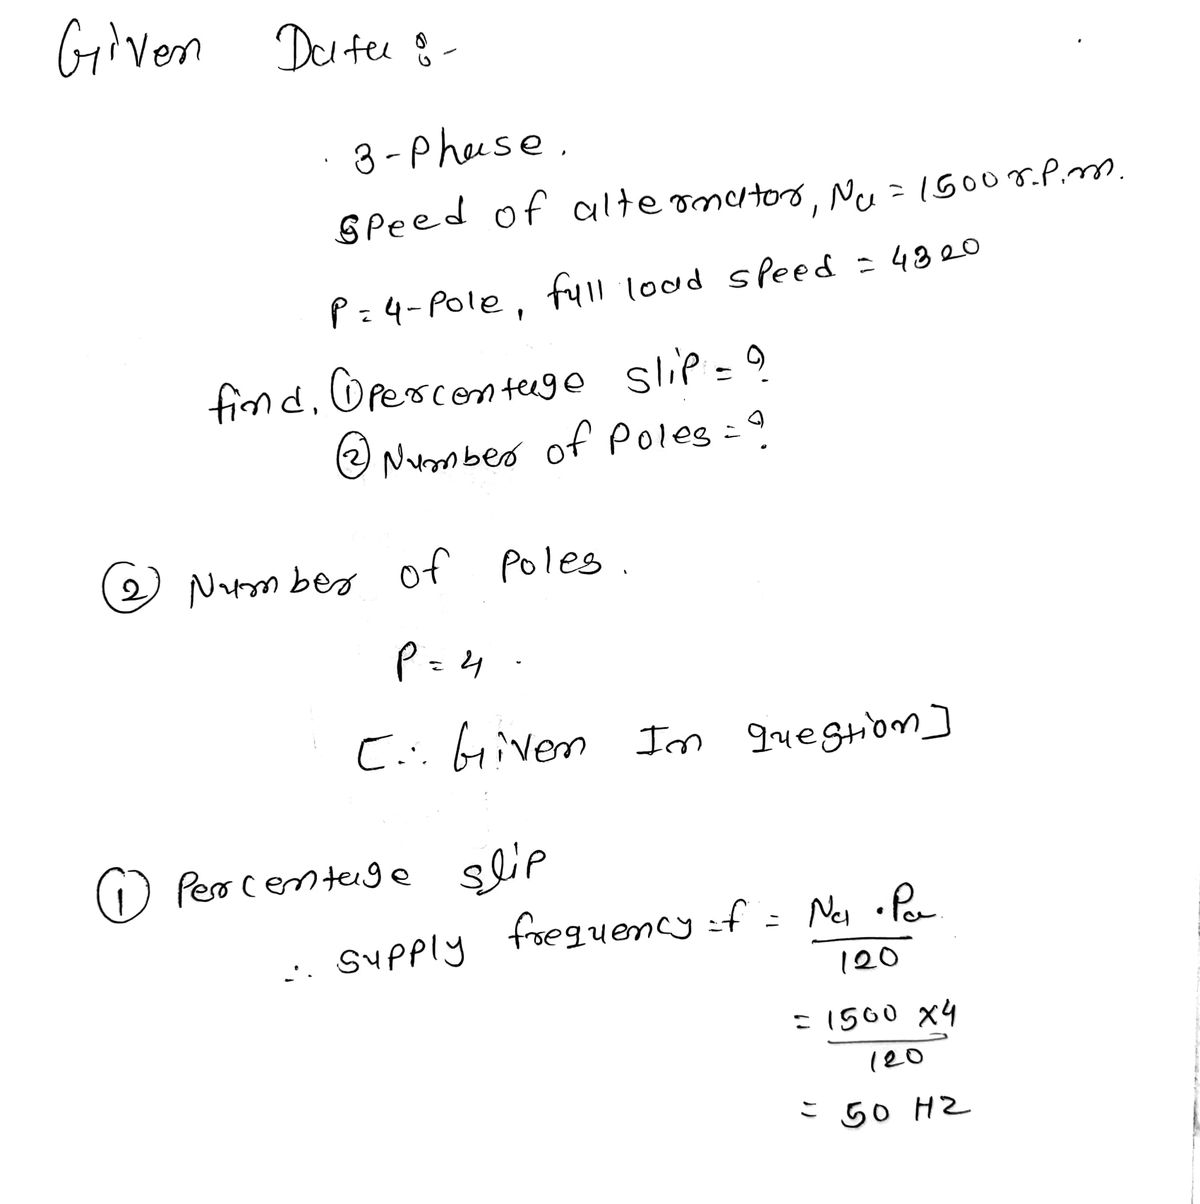 Given Data :-
3-Phase.
Speed of alternator, Na = 1500 r.p.m.
P = 4-Pole, full load speed = 4320
find, ① Percentage slip = ?
② Number of Poles = ?
② Number of Poles.
P = 4.
[∴ Given In question]
① Percentage slip
∴ supply frequency = f = Na . Pa / 120
= 1500 x 4 / 120
= 50 HZ